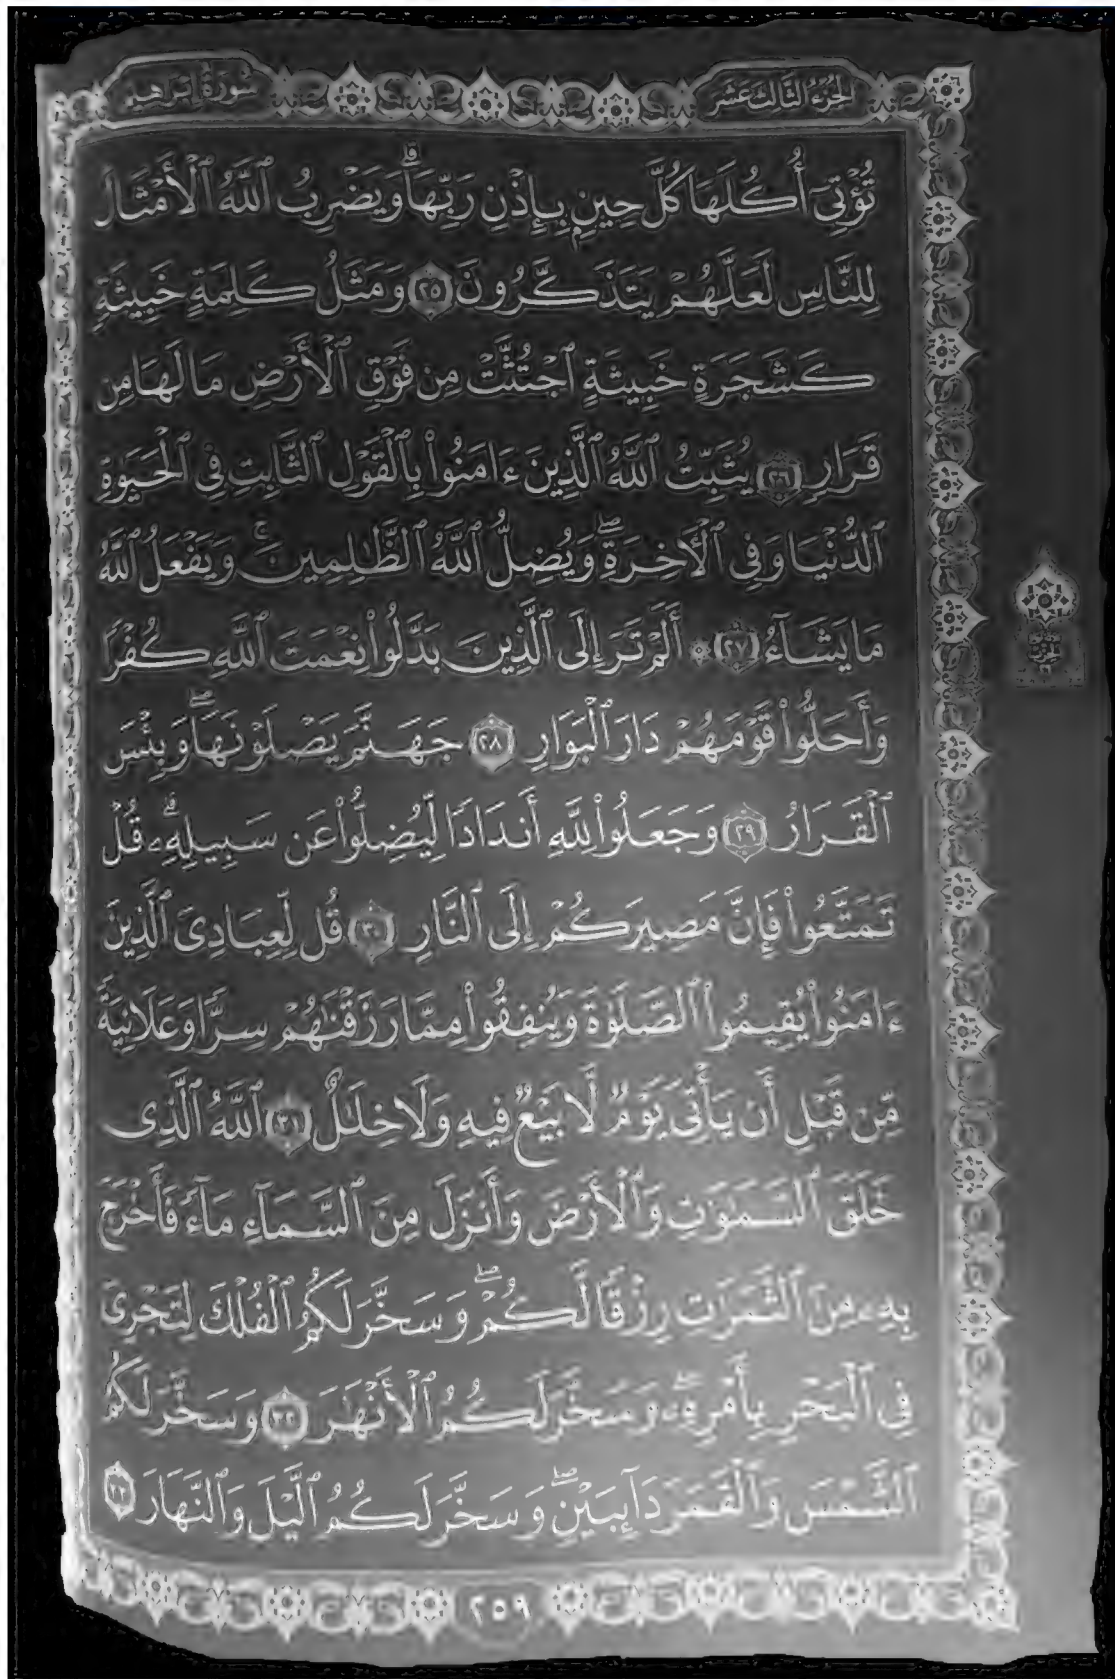 الجزء الثالث عشر
سورة إبراهيم
تُؤْتِىٓ أُكُلَهَا كُلَّ حِينٍۭ بِإِذْنِ رَبِّهَاۗ وَيَضْرِبُ ٱللَّهُ ٱلْأَمْثَالَ
لِلنَّاسِ لَعَلَّهُمْ يَتَذَكَّرُونَ ٢٥ وَمَثَلُ كَلِمَةٍ خَبِيثَةٍ
كَشَجَرَةٍ خَبِيثَةٍ ٱجْتُثَّتْ مِن فَوْقِ ٱلْأَرْضِ مَا لَهَا مِن
قَرَارٍ ٢٦ يُثَبِّتُ ٱللَّهُ ٱلَّذِينَ ءَامَنُوا۟ بِٱلْقَوْلِ ٱلثَّابِتِ فِى ٱلْحَيَوٰةِ
ٱلدُّنْيَا وَفِى ٱلْءَاخِرَةِۖ وَيُضِلُّ ٱللَّهُ ٱلظَّٰلِمِينَۚ وَيَفْعَلُ ٱللَّهُ
مَا يَشَآءُ ٢٧ ۞ أَلَمْ تَرَ إِلَى ٱلَّذِينَ بَدَّلُوا۟ نِعْمَتَ ٱللَّهِ كُفْرًا
وَأَحَلُّوا۟ قَوْمَهُمْ دَارَ ٱلْبَوَارِ ٢٨ جَهَنَّمَ يَصْلَوْنَهَاۖ وَبِئْسَ
ٱلْقَرَارُ ٢٩ وَجَعَلُوا۟ لِلَّهِ أَندَادًا لِّيُضِلُّوا۟ عَن سَبِيلِهِۦۗ قُلْ
تَمَتَّعُوا۟ فَإِنَّ مَصِيرَكُمْ إِلَى ٱلنَّارِ ٣٠ قُل لِّعِبَادِىَ ٱلَّذِينَ
ءَامَنُوا۟ يُقِيمُوا۟ ٱلصَّلَوٰةَ وَيُنفِقُوا۟ مِمَّا رَزَقْنَٰهُمْ سِرًّا وَعَلَانِيَةً
مِّن قَبْلِ أَن يَأْتِىَ يَوْمٌ لَّا بَيْعٌ فِيهِ وَلَا خِلَٰلٌ ٣١ ٱللَّهُ ٱلَّذِى
خَلَقَ ٱلسَّمَٰوَٰتِ وَٱلْأَرْضَ وَأَنزَلَ مِنَ ٱلسَّمَآءِ مَآءً فَأَخْرَجَ
بِهِۦ مِنَ ٱلثَّمَرَٰتِ رِزْقًا لَّكُمْۖ وَسَخَّرَ لَكُمُ ٱلْفُلْكَ لِتَجْرِىَ
فِى ٱلْبَحْرِ بِأَمْرِهِۦۖ وَسَخَّرَ لَكُمُ ٱلْأَنْهَٰرَ ٣٢ وَسَخَّرَ لَكُمُ
ٱلشَّمْسَ وَٱلْقَمَرَ دَآئِبَيْنِۖ وَسَخَّرَ لَكُمُ ٱلَّيْلَ وَٱلنَّهَارَ ٣٣
٢٥٩